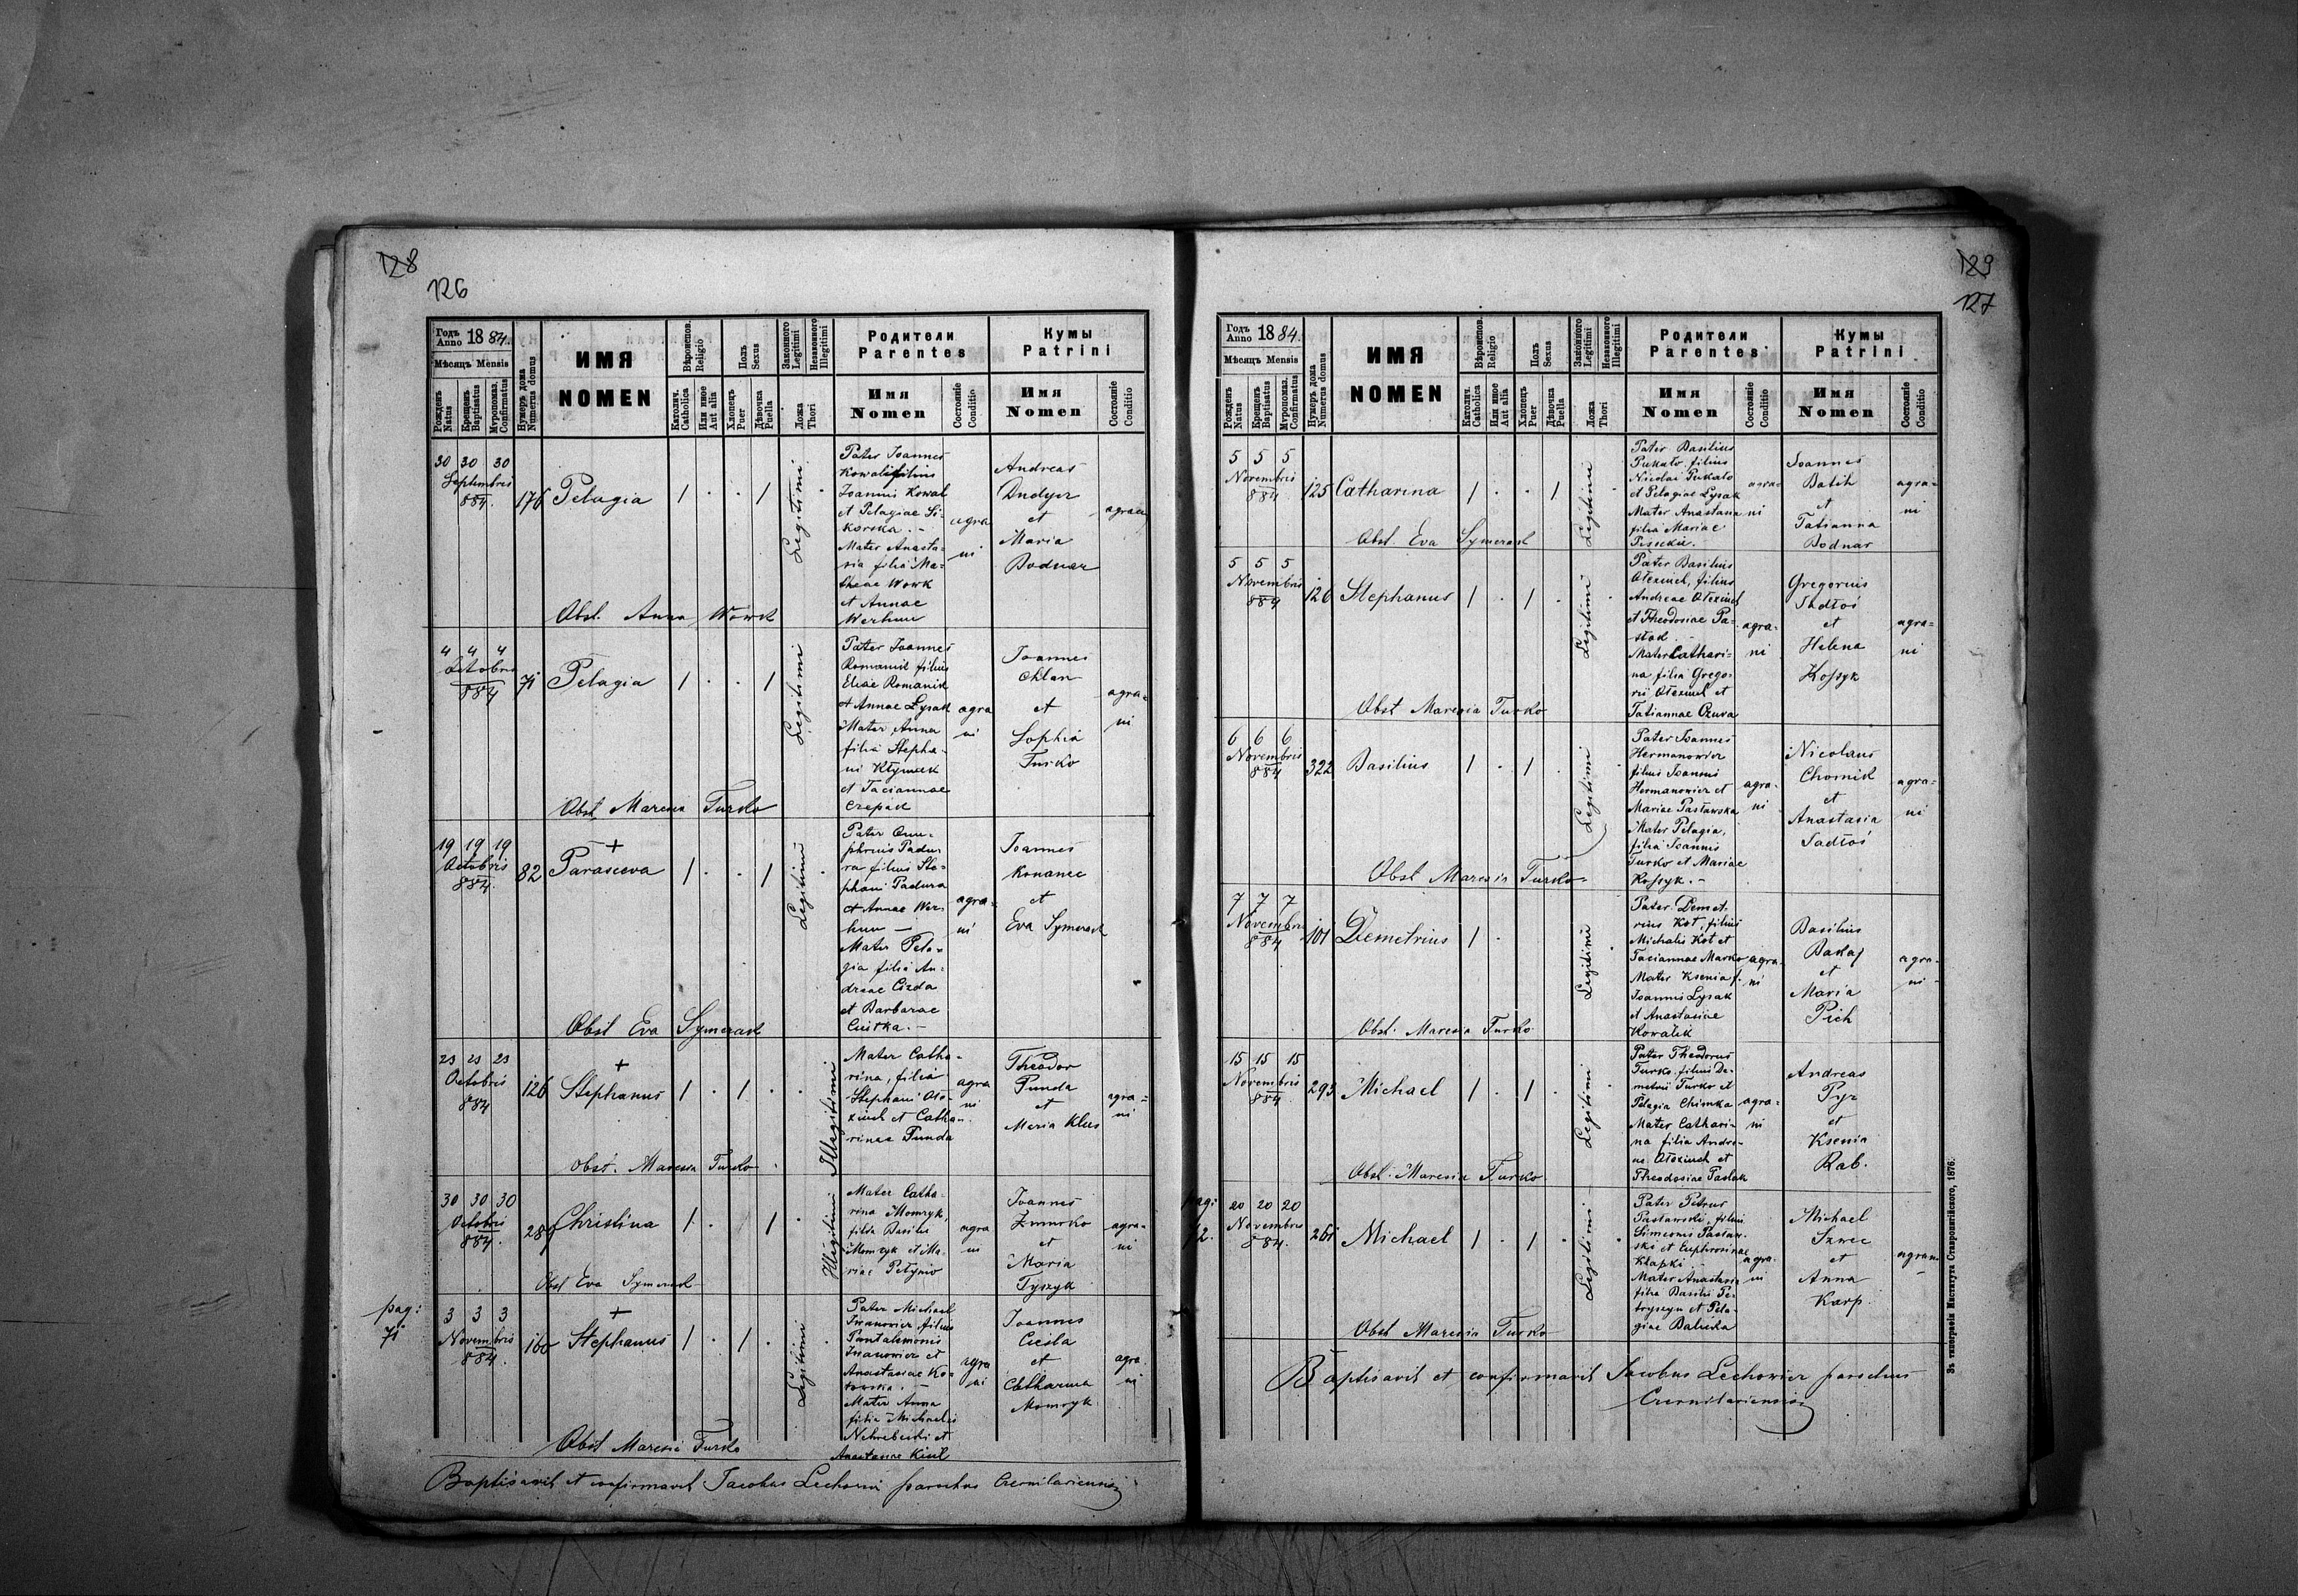 128
126
Годъ Anno 1884.
Мѣсяцъ Mensis
Рожденъ Natus
Крещенъ Baptisatus
Мѵропомаз. Confirmatus
Нумеръ дома Numerus domus
ИМЯ
NOMEN
Вѣроиспов. Religio
Католич. Catholica
Или иное Aut alia
Полъ Sexus
Хлопецъ Puer
Дѣвочка Puella
Законного Legitimi
Незаконного Illegitimi
Ложа Thori
Родители
Parentes
Имя
Nomen
Состояніе Conditio
Кумы
Patrini
Имя
Nomen
Состояніе Conditio
30 30 30
Septembris
884.
176
Pelagia
1 . . 1
Legitimi
Pater Joannes
Kowal filius
Joannis Kowal
et Pelagiae Si-
korska. -
Mater Anasta-
sia filia Ma-
theae Wowk
et Annae
Werhun
agra
ni
Andreas
Dudycz
et
Maria
Bodnar
agrani
Obst. Anna Wowk
4 4 4
Octobris
884
71
Pelagia
1 . . 1
Legitimi
Pater Joannes
Romanik filius
Eliae Romanik
et Annae Lysak
Mater Anna
filia Stepha-
ni Klymek
et Taciannae
Czepak
agra
ni
Joannes
Chlan
et
Sophia
Turko
agra-
ni
Obst Maresia Turko
19 19 19
Octobris
884.
82
+
Parasceva
1 . . 1
Legitimi
Pater Onu-
phrius Padu-
ra filius Ste-
phani Padura
et Annae Wer-
hun —
Mater Pela-
gia filia An-
dreae Cizda
et Barbarae
agra-
ni
Joannes
Konanec
et
Eva Symerach
Obst Eva Symerach
23 23 23
Octobris
884
126
+
Stephanus
1 . 1 . .
Illegitimi
Mater Catha-
rina, filia
Stephani
et Catha-
rinae Punda
agra
ni
Theodor
Punda
et
Maria Klus
agra-
ni
Obst. Maresia Turko
30 30 30
Octobris
884.
289
Christina
1 . 1 .
Illegitimi
Mater Catha-
rina Momryk,
filia Basilii
Momryk et Ma-
riae Petyniv
agra
ni
Joannes
Zmurko
et
Maria
Tyszyk
agra-
ni
Obst Eva Symerach
pag:
71
3 3 3
Novembris
884.
160
+
Stephanus
1 . 1 . .
Legitimi
Pater Michael
Iwanowicz filius
Pantalemonis
Iwanowicz et
Anastasiae Ko-
towska. —
Mater Anna
filia Michaelis
Nehrebecki et
Anastasiae Kisil
agra
ni
Joannes
Ciesla
et
Catharina
Momryk
agra.
ni
Obst Maresia Turko
Baptisavit et confirmavit Jacobus Lechowicz parochus Czernilaviensis
129
127
Годъ Anno 1884.
Мѣсяцъ Mensis
Рожденъ Natus
Крещенъ Baptisatus
Мѵропомаз. Confirmatus
Нумеръ дома Numerus domus
ИМЯ
NOMEN
Вѣроиспов. Religio
Католич. Catholica
Или иное Aut alia
Полъ Sexus
Хлопецъ Puer
Дѣвочка Puella
Законного Legitimi
Незаконного Illegitimi
Ложа Thori
Родители
Parentes
Имя
Nomen
Состояніе Conditio
Кумы
Patrini
Имя
Nomen
Состояніе Conditio
5 5 5
Novembris
884.
125
Catharina
1 . . 1
Legitimi
Pater Basilius
Pukalo filius
Nicolai Pukalo
et Pelagiae Lysak
Mater Anastasia
filia Mariae
agra-
ni
Joannes
Batih
et
Tatianna
Bodnar
agra-
ni
Obst. Eva Symerach
5 5 5
Novembris
884
126
Stephanus
1 . 1 .
Legitimi
Pater Basilius
filius
Andreae
et Theodosiae Pa-
stak -
Mater Cathari-
na filia Grego-
rii et
Tatiannae Czuwa
agra-
ni
Gregorius
Sadłoś
et
Helena
Kossyk
agra-
ni
Obst Maresia Turko
6 6 6
Novembris
884
322
Basilius
1 . 1 .
Legitimi
Pater Joannes
Hermanowicz
filius Joannis
Hermanowicz et
Mariae Pasławska
Mater Pelagia,
filia Joannis
Turko et Mariae
Kossyk. -
agra-
ni
Nicolaus
Chomik
et
Anastasia
Sadłoś
agra-
ni
Obst Maresia Turko
7 7 7
Novembris
884
101
Demetrius
1 .
Legitimi
Pater Demet-
rius Kot, filius
Michalis Kot et
Taciannae Marko
Mater Ksenia f.
Joannis Lysak
et Anastasiae
Kowalik
agra-
ni
Basilius
Bakaj
et
Maria
Pich
agra-
ni
Obst. Maresia Turko
15 15 15
Novembris
884.
295
Michael
1 . 1 .
Legitimi
Pater Theodorus
Turko filius De-
metrii Turko et
Pelagia Chimka
Mater Cathari-
na filia Andre-
ae et
Theodosiae Pastak
agra-
ni
Andreas
Pyz
et
Ksenia
Rab.
Obst. Maresia Turko
pag:
72.
20 20 20
Novembris
884.
261
Michael
1 . 1 .
Legitimi
Pater Petrus
Pasławski, filius
Simeonis Pasław-
ski et Euphrosinae
Klapki. -
Mater Anastasia
filia Basilii Pe-
tryszyn et Pela-
giae
agra-
ni
Michael
Szwec
et
Anna
Karp.
agrani
Obst Maresia Turko
Baptisavit et confirmavit Jacobus Lechowicz parochus
Czernilaviensis
Зъ типографіи Института Ставропигійского, 1876.